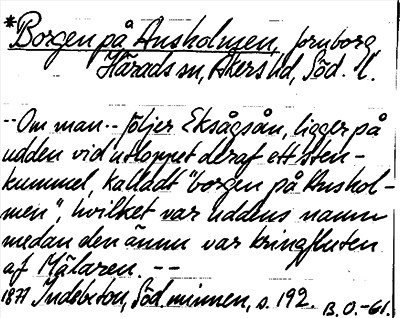 *Borgen på Ansholmen, fornborg
Härads sn, Åkers hd, Söd. l.
--Om man -- följer Eksågsån, ligger på
udden vid utloppet deraf ett sten-
kummel, kalladt "borgen på Anshol-
men", hvilket var uddens namn
medan den ännu var kringfluten
af Mälaren. --
1877 Indebetou, Söd. minnen, s. 192. B.O.-61.